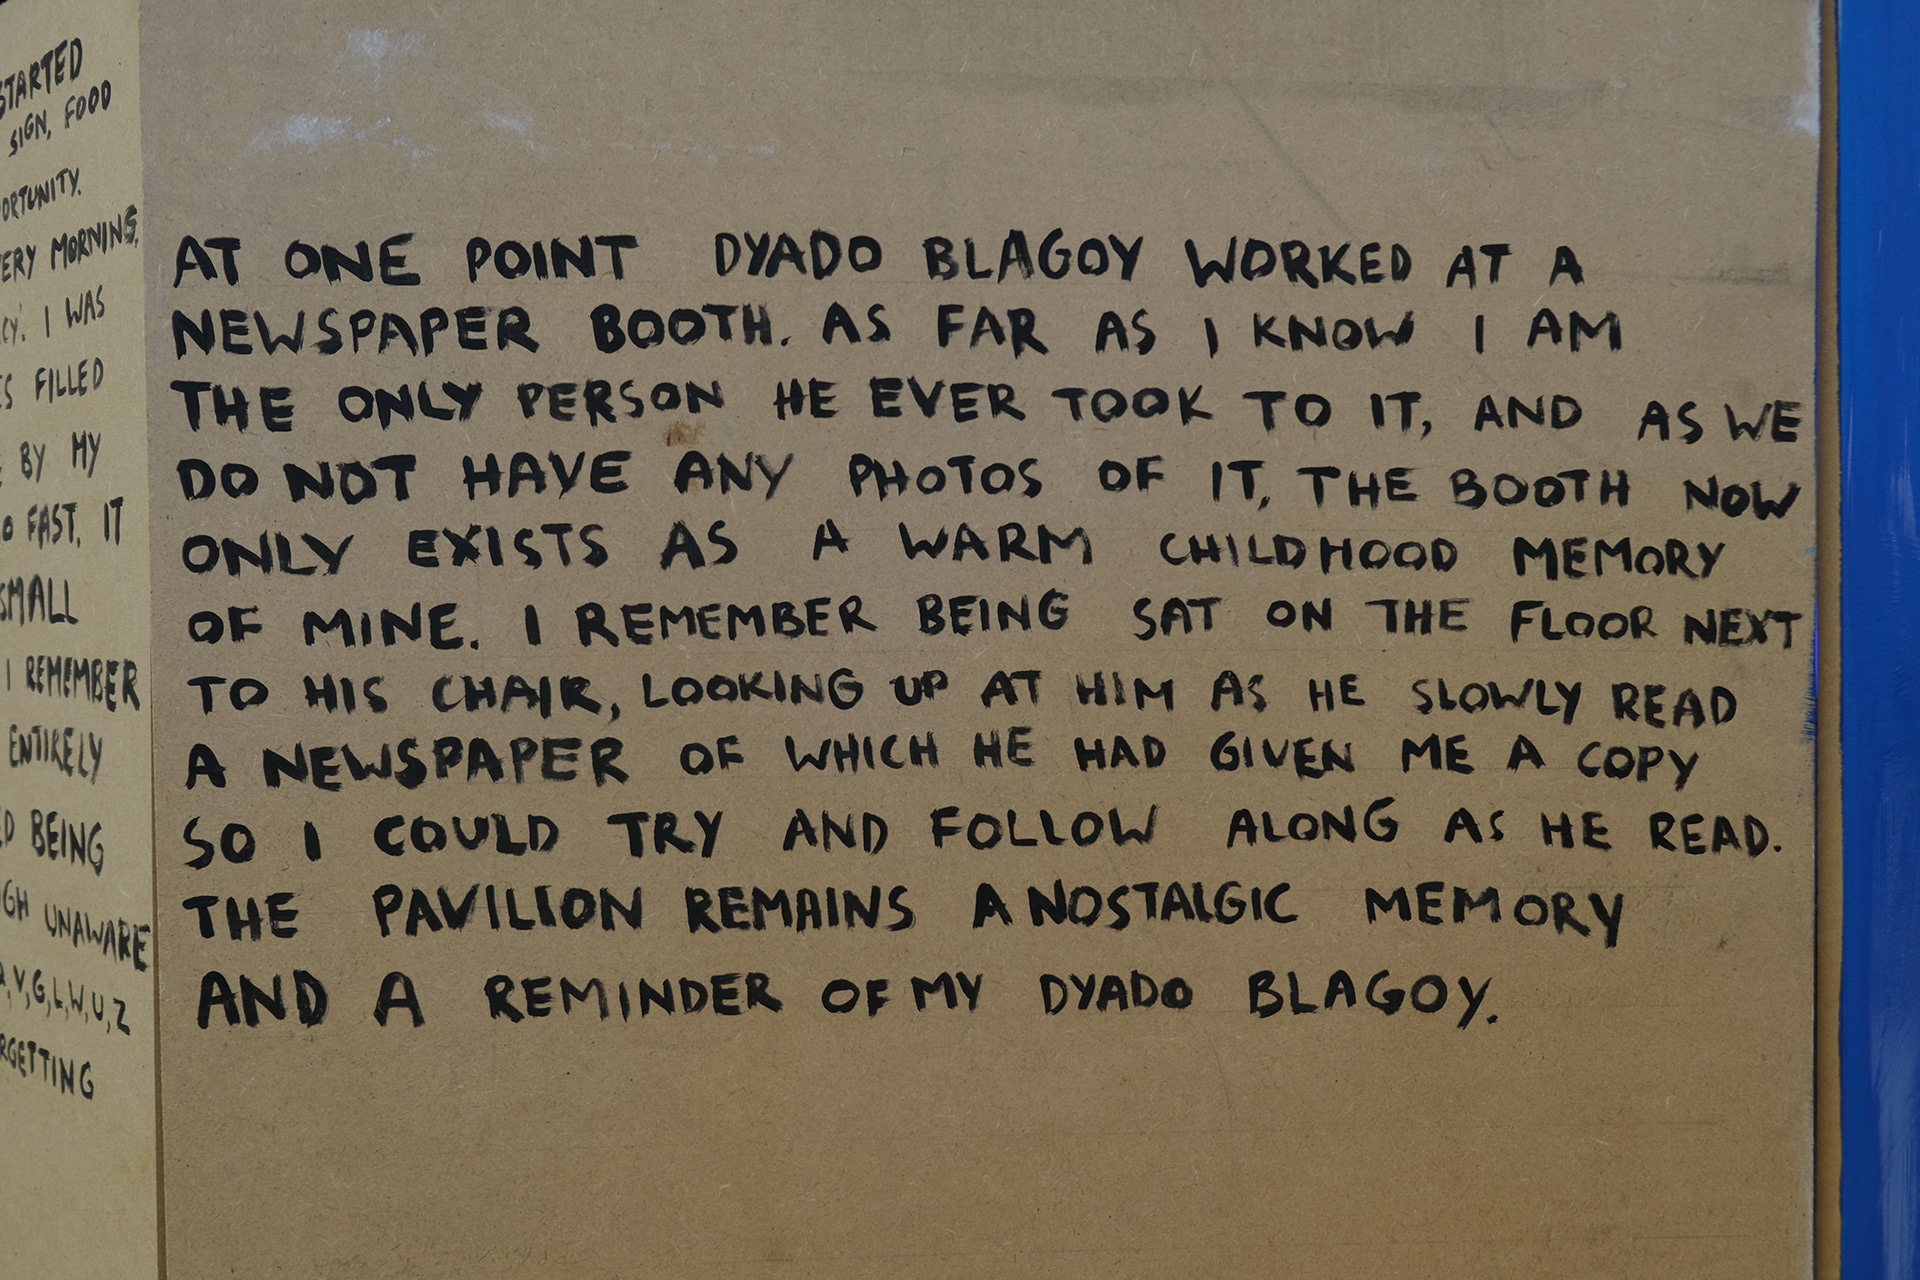 STARTED
SIGN, FOOD
MORNING,
I WAS
FILLED
BY MY
FAST. IT
SMALL
I REMEMBER
ENTIRELY
BEING
UNAWARE
V, G, L, W, U, Z
AT ONE POINT DYADO BLAGOY WORKED AT A
NEWSPAPER BOOTH. AS FAR AS I KNOW I AM
THE ONLY PERSON HE EVER TOOK TO IT, AND AS WE
DO NOT HAVE ANY PHOTOS OF IT, THE BOOTH NOW
ONLY EXISTS AS A WARM CHILDHOOD MEMORY
OF MINE. I REMEMBER BEING SAT ON THE FLOOR NEXT
TO HIS CHAIR, LOOKING UP AT HIM AS HE SLOWLY READ
A NEWSPAPER OF WHICH HE HAD GIVEN ME A COPY
SO I COULD TRY AND FOLLOW ALONG AS HE READ.
THE PAVILION REMAINS A NOSTALGIC MEMORY
AND A REMINDER OF MY DYADO BLAGOY.